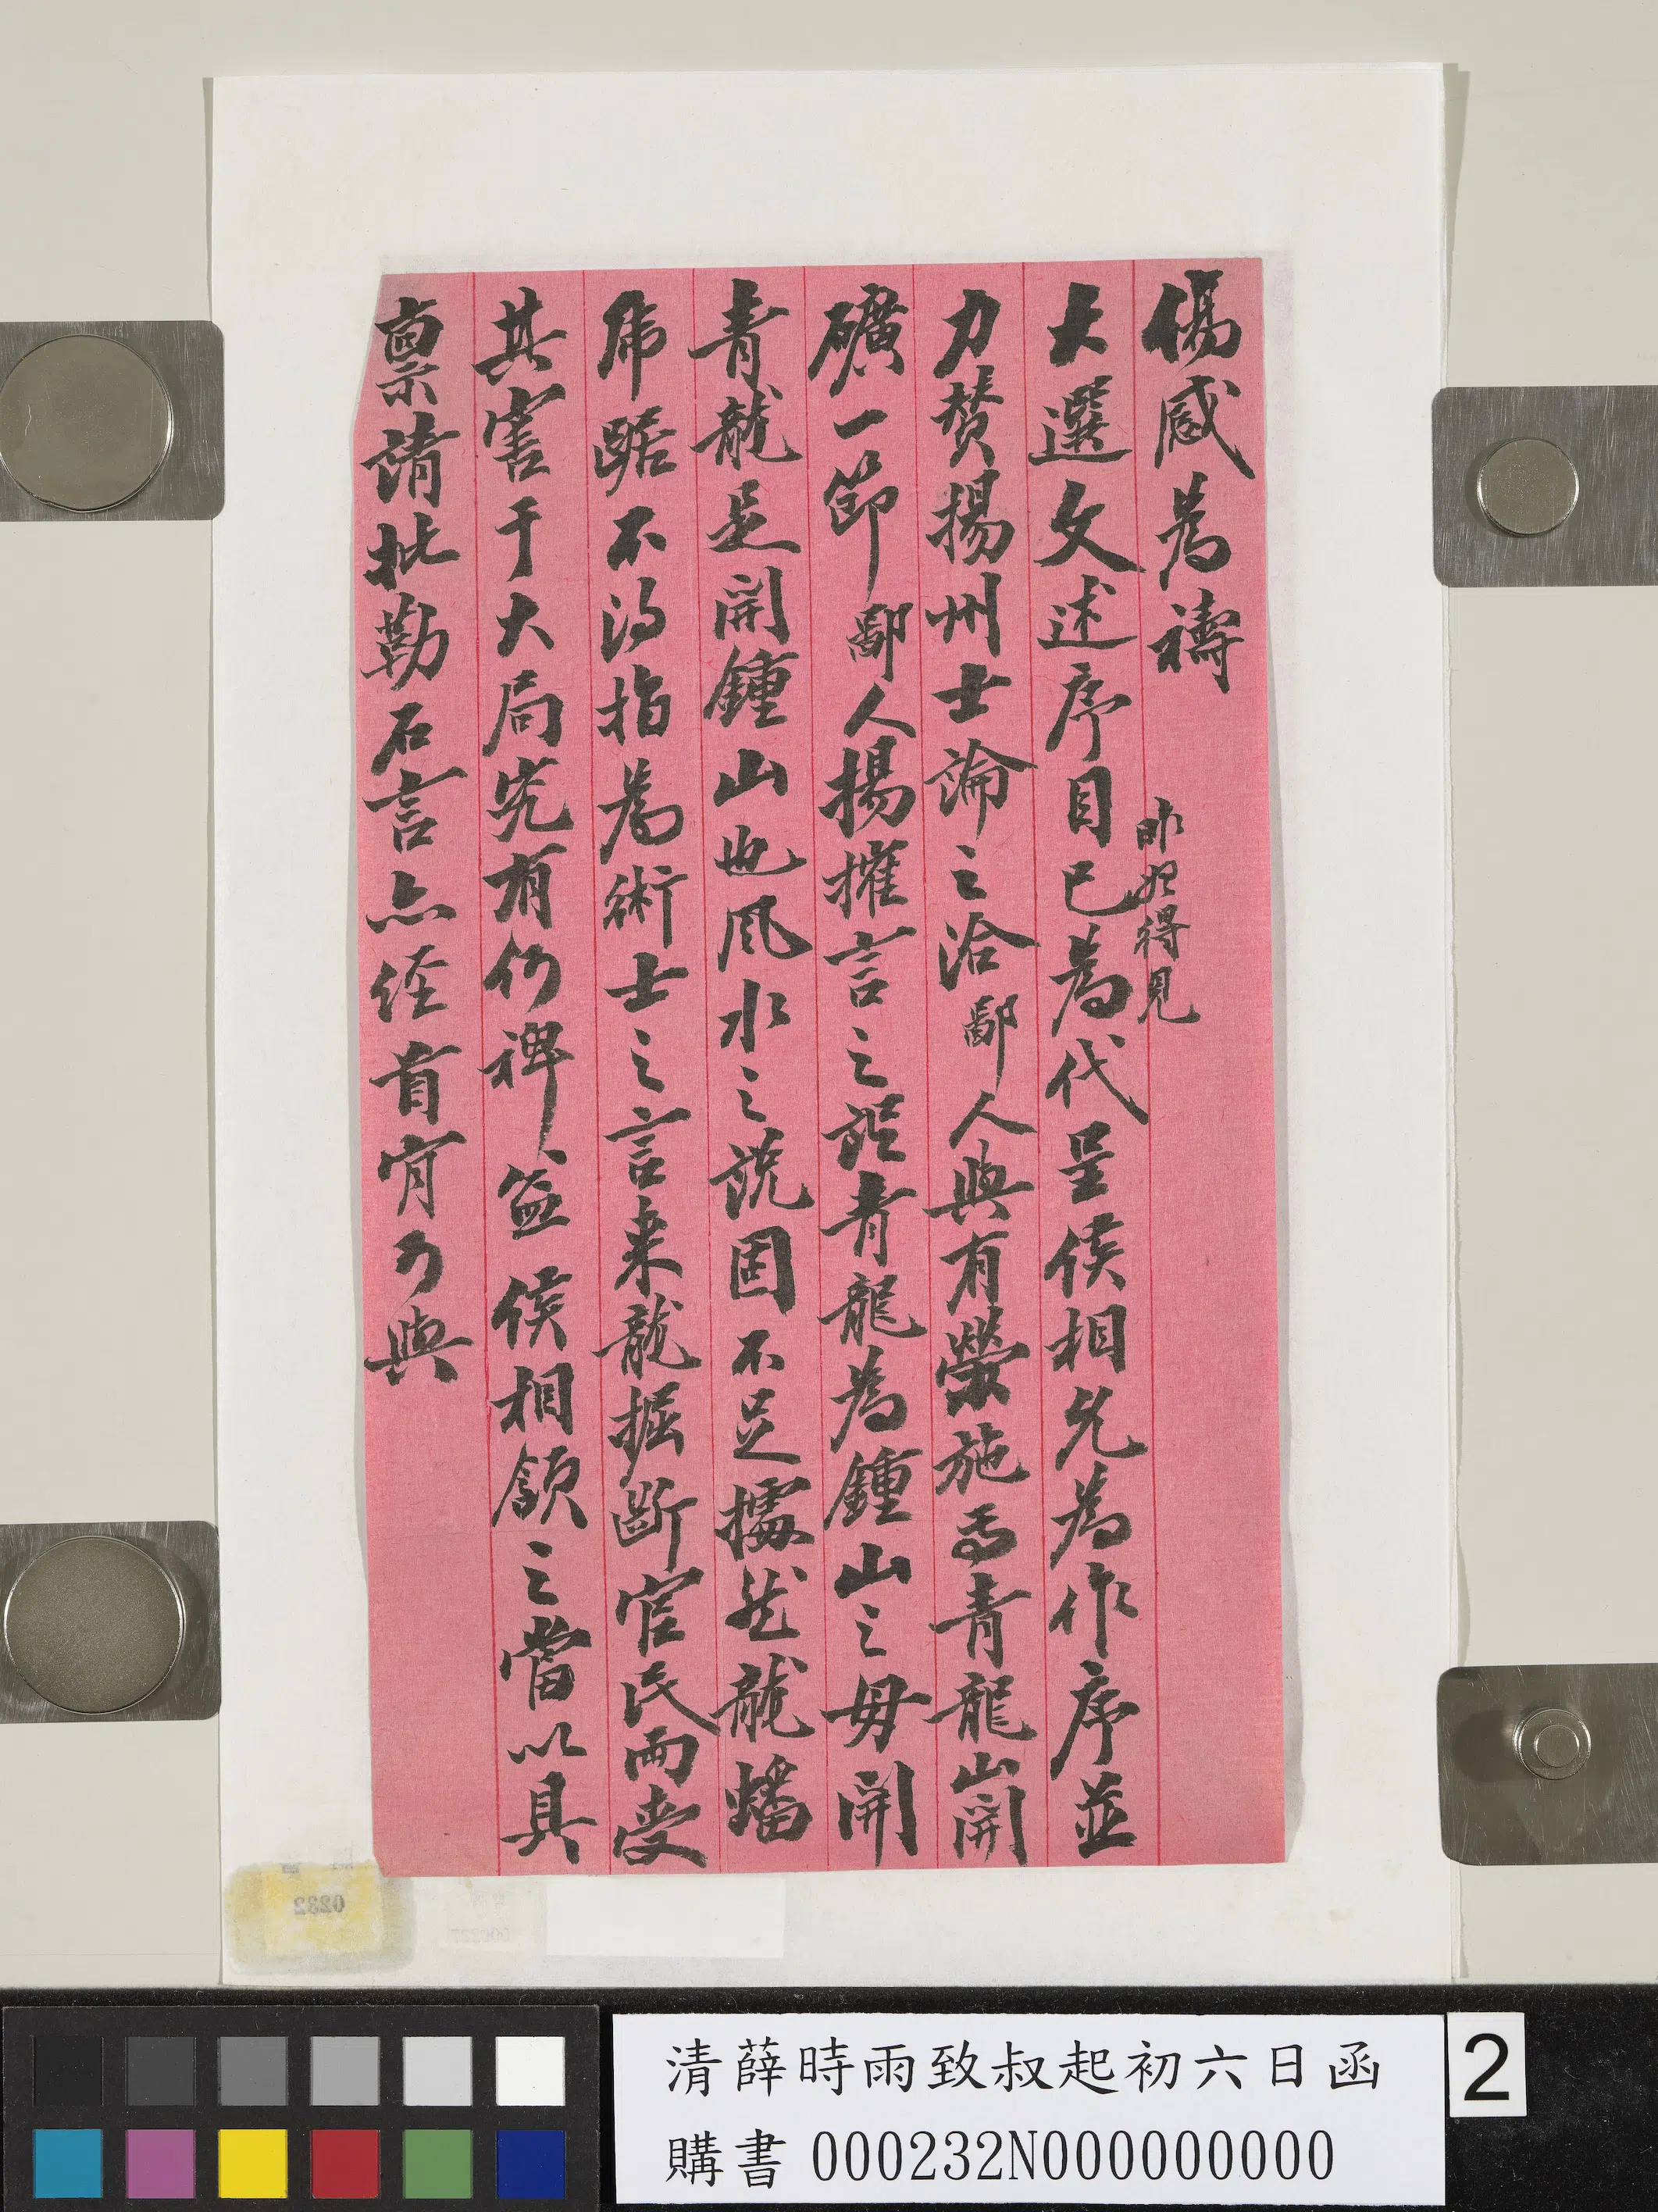 傷感為禱
昨始得見
大選文述序目已為代呈侯相允為作序並
力贊揚州士論之洽鄙人與有榮施焉青龍山開
礦一節鄙人揚搉言之詎青龍為鍾山之毋開
青龍是開鍾山也風水之說固不足據然龍蟠
虎踞不得指為術士之言來龍掘斷官民兩受
其害于大局究有何裨益侯相頷之當以具
稟請批勒石言亦經首肯可與
清薛時雨致叔起初六日函
購書 000232N000000000
2
0232